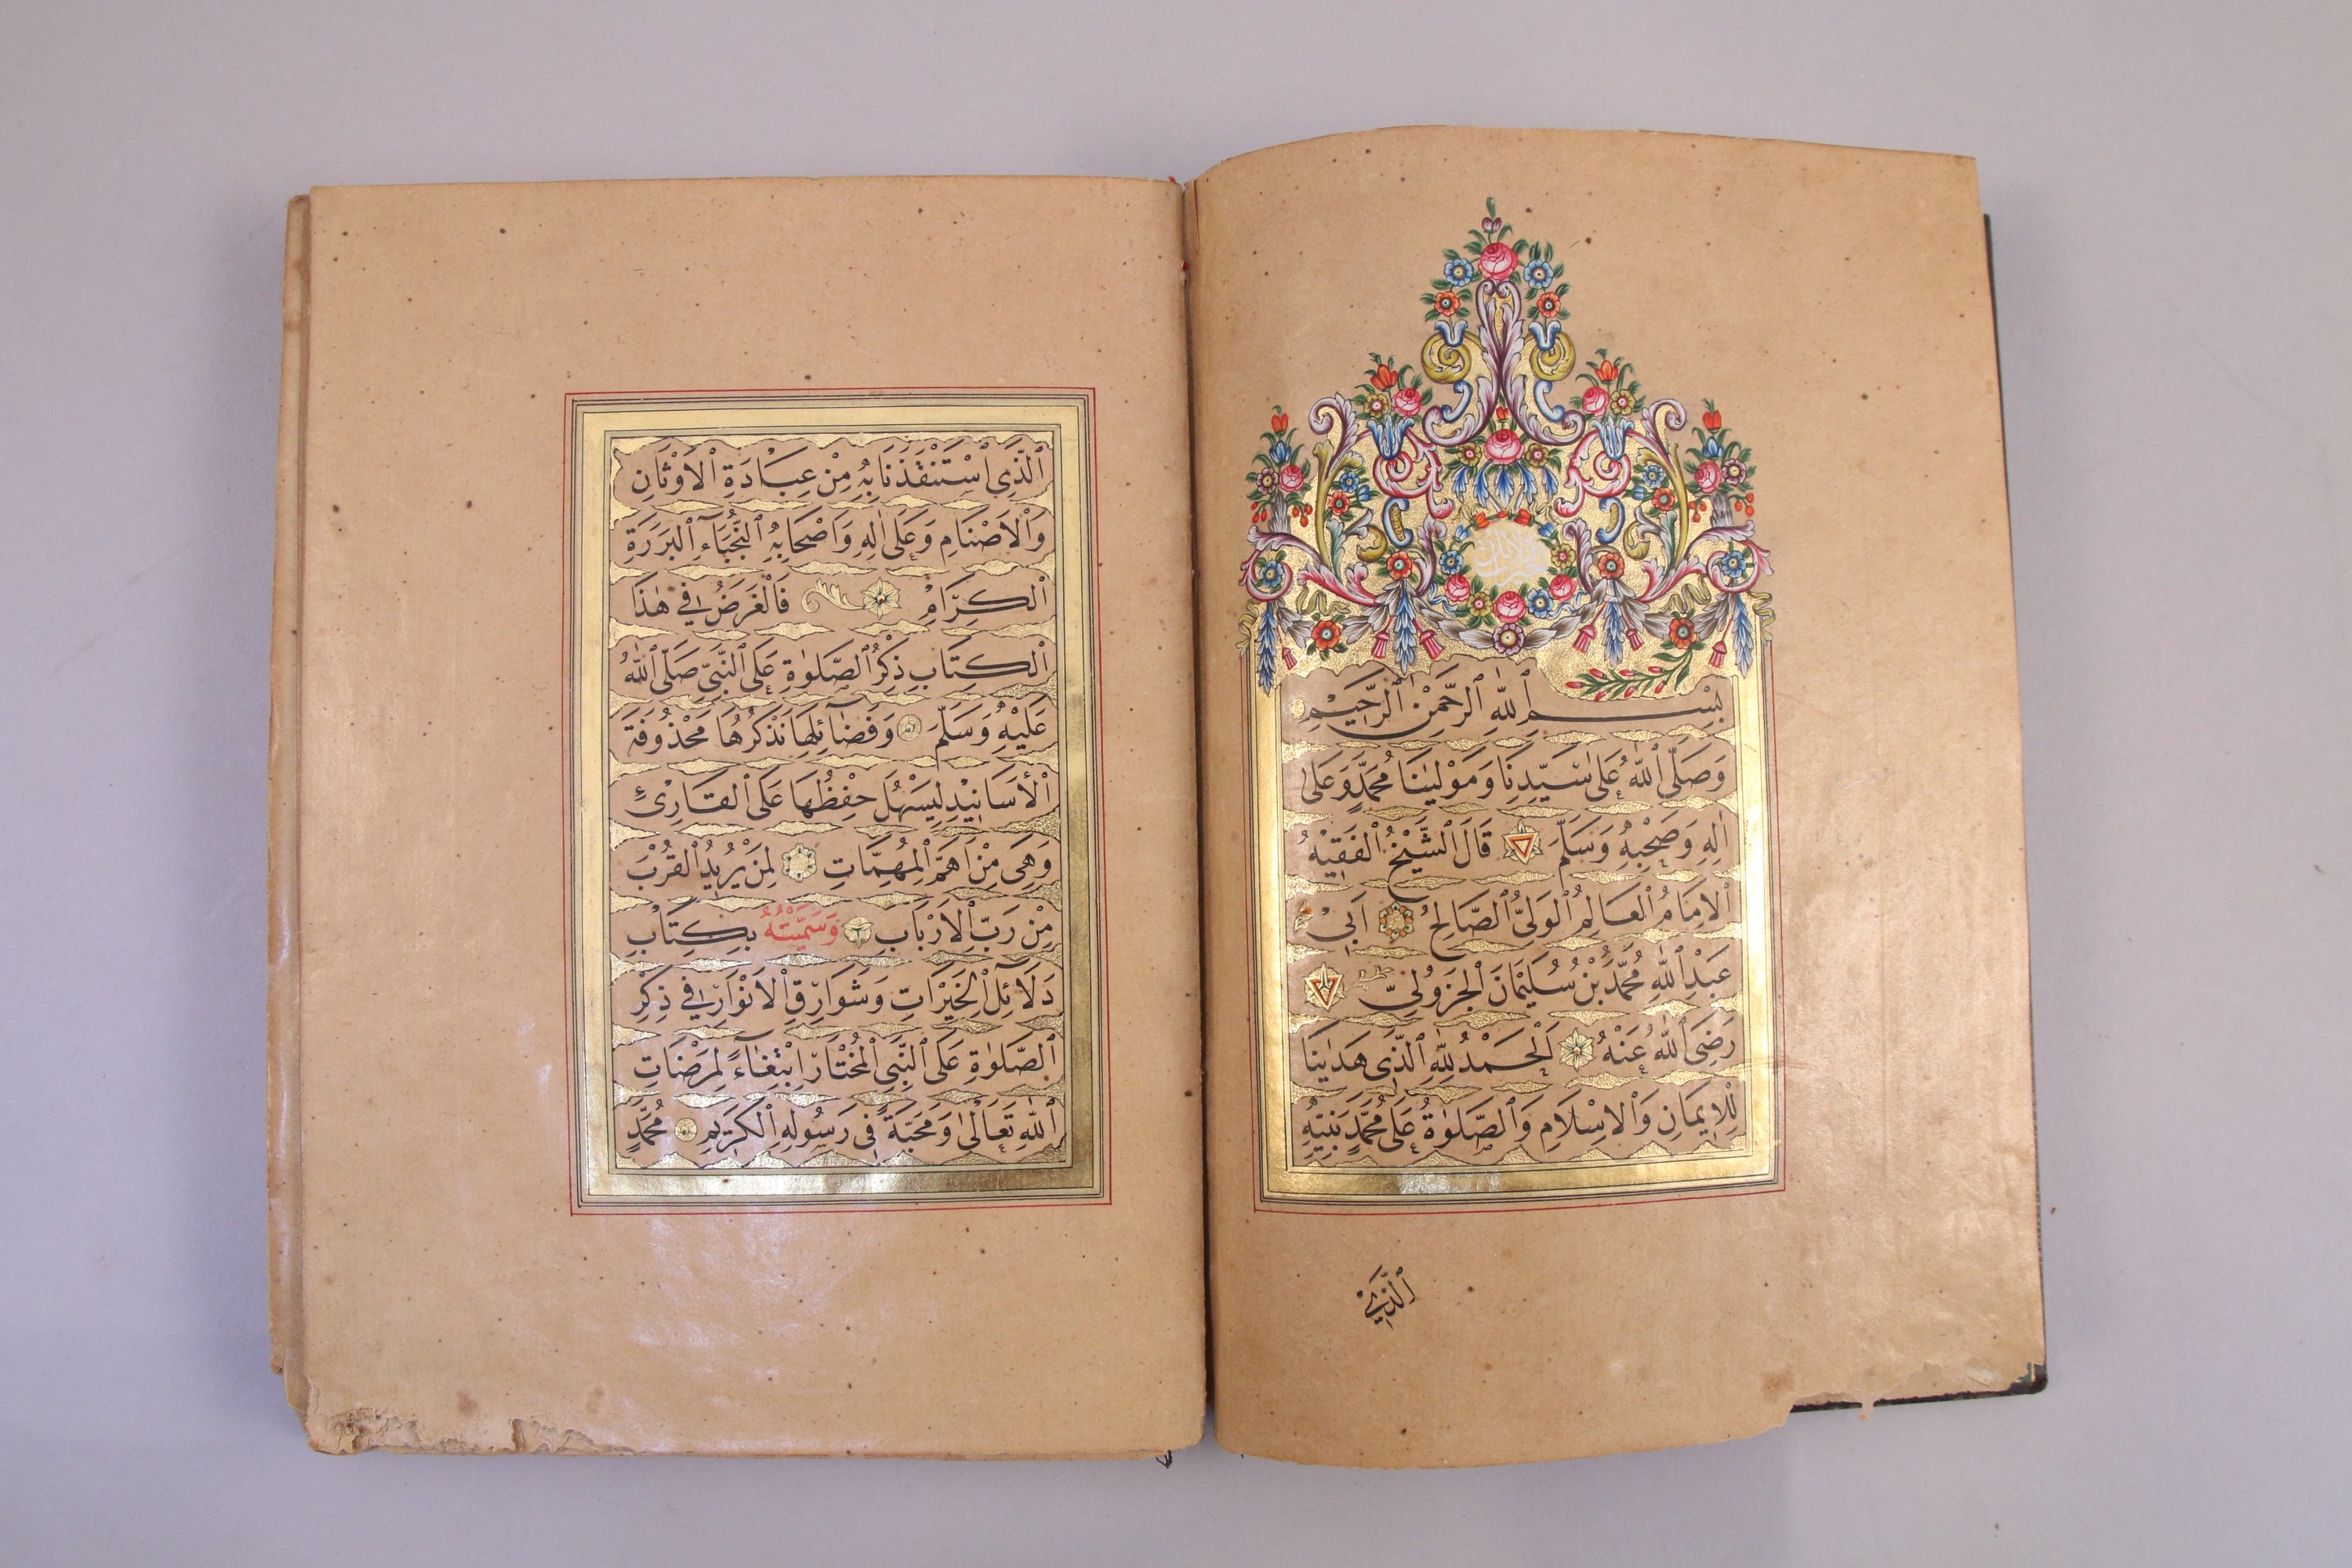 بِسْمِ اللّٰهِ الرَّحْمٰنِ الرَّحِيْمِ
وَصَلَّى اللّٰهُ عَلٰى سَيِّدِنَا وَمَوْلٰينَا مُحَمَّدٍ وَعَلٰى
اٰلِهِ وَصَحْبِهِ وَسَلَّمَ قَالَ الشَّيْخُ الْفَقِيْهُ
الْاِمَامُ الْعَالِمُ الْوَلِىُّ الصَّالِحُ اَبِىْ
عَبْدِ اللّٰهِ مُحَمَّدُ بْنُ سُلَيْمَانَ الْجَزُولِىّ
رَضِىَ اللّٰهُ عَنْهُ اَلْحَمْدُ لِلّٰهِ الَّذِى هَدٰينَا
لِلْاِيمَانِ وَالْاِسْلَامِ وَالصَّلٰوةُ عَلٰى مُحَمَّدٍ نَبِيِّهِ
الَّذِي
الَّذِى اسْتَنْقَذَنَا بِهِ مِنْ عِبَادَةِ الْاَوْثَانِ
وَالْاَصْنَامِ وَعَلٰى اٰلِهِ وَاَصْحَابِهِ النُّجَبَآءِ الْبَرَرَةِ
الْكِرَامِ فَالْغَرَضُ فِى هٰذَا
الْكِتَابِ ذِكْرُ الصَّلٰوةِ عَلَى النَّبِىِّ صَلَّى اللّٰهُ
عَلَيْهِ وَسَلَّمَ وَفَضَآئِلِهَا نَذْكُرُهَا مَحْذُوفَةَ
الْأَسَانِيْدِ لِيَسْهُلَ حِفْظُهَا عَلَى الْقَارِئِ
وَهِىَ مِنْ اَهَمِّ الْمُهِمَّاتِ لِمَنْ يُرِيدُ الْقُرْبَ
مِنْ رَبِّ الْاَرْبَابِ وَسَمَّيْتُهُ بِكِتَابِ
دَلَآئِلِ الْخَيْرَاتِ وَشَوَارِقِ الْاَنْوَارِ فِي ذِكْرِ
الصَّلٰوةِ عَلَى النَّبِىِّ الْمُخْتَارِ اِبْتِغَآءً لِمَرْضَاتِ
اللّٰهِ تَعَالٰى وَمَحَبَّةً فِى رَسُولِهِ الْكَرِيمِ مُحَمَّدٍ